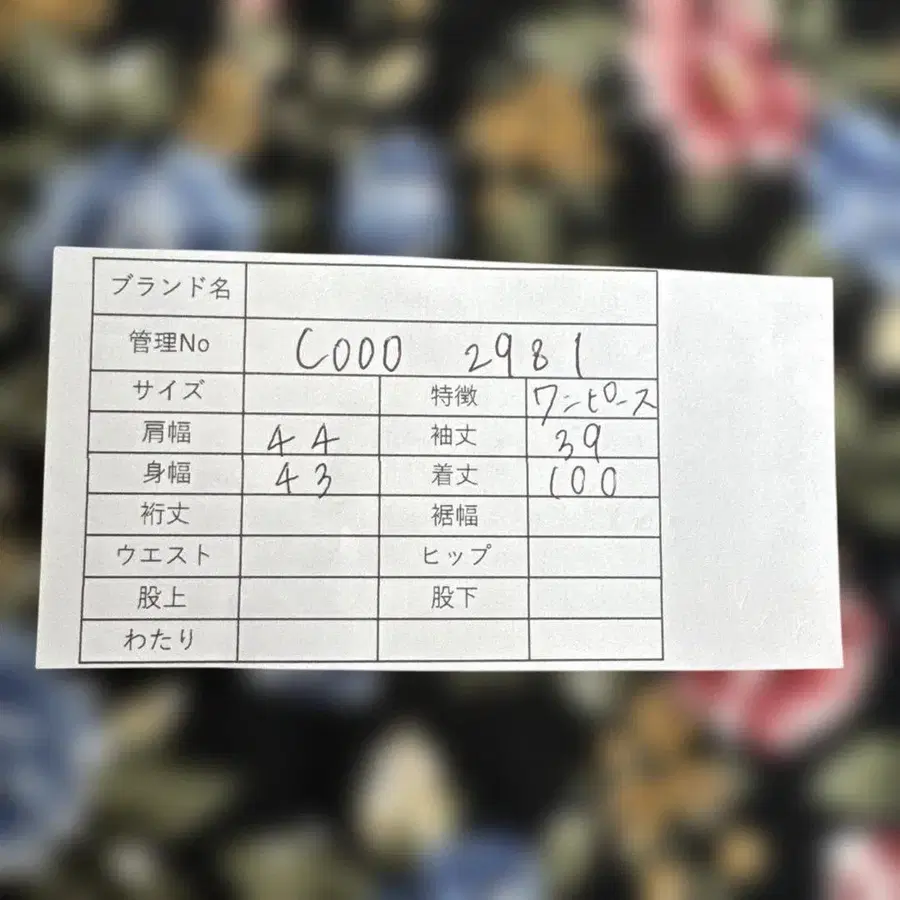 ブランド名
管理No C000 2981
サイズ 特徴 ワンピース
肩幅 44 袖丈 39
身幅 43 着丈 100
裄丈 裾幅
ウエスト ヒップ
股上 股下
わたり